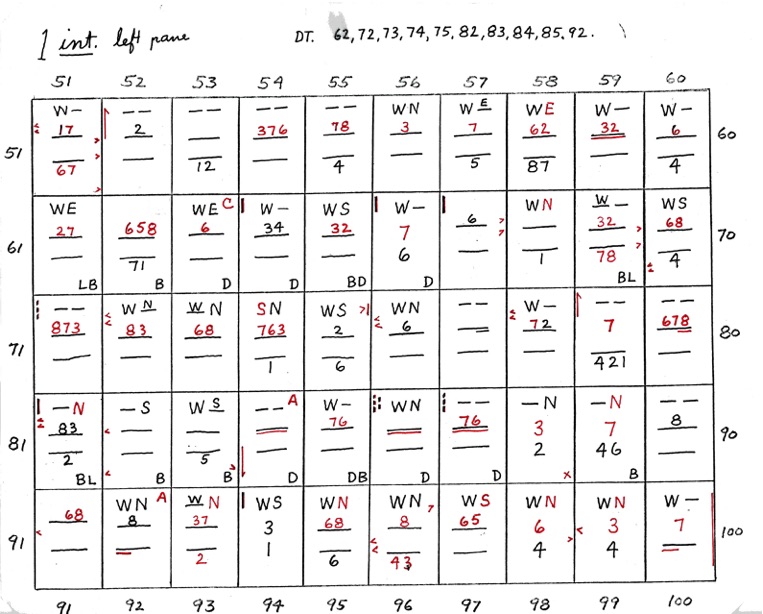 1 int. left pane DT. 62,72,73,74,75,82,83,84,85,92.
51 52 53 54 55 56 57 58 59 60
W— —— —— —— —— WN WE WE W— W—
51 17 2 376 78 3 7 62 32 6 60
67 12 4 5 87 4
WE WE C W— WS W— WN W— WS
61 27 658 6 34 32 7 6 32 68 70
71 6 1 78 4
LB B D D BD D BL
—— WN WN SN WS WN —— W— —— ——
71 873 83 68 763 2 6 72 7 678 80
1 6 421
—N —S WS —— A W— WN —— —N —N
81 83 76 76 3 7 8 90
2 5 2 46
BL B B D DB D D x B
WN A WN WS WN WN WS WN WN W—
91 68 8 37 3 68 8 65 6 3 7 100
2 1 6 43 4 4
91 92 93 94 95 96 97 98 99 100